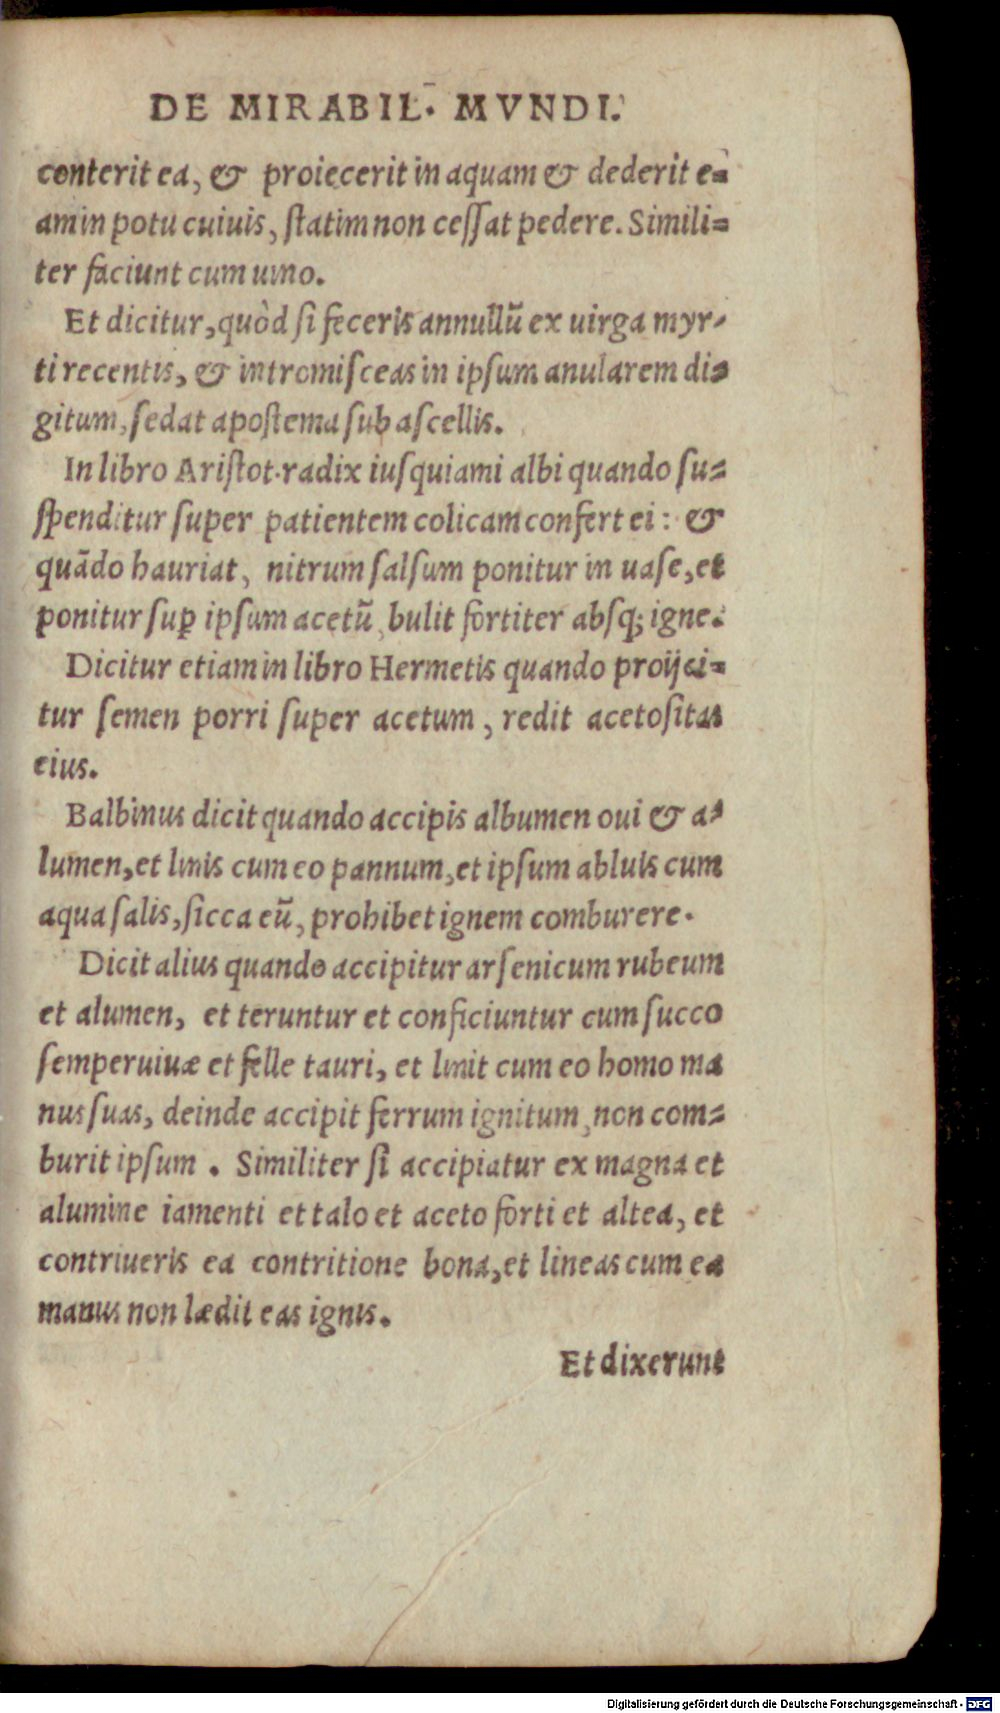 DE MIRABIL. MVNDI.
conterit ea, & proiecerit in aquam & dederit e=
am in potu cuiuis, ſtatim non ceſſat pedere. Simili=
ter faciunt cum uino.
Et dicitur, quòd ſi feceris annullũ ex uirga myr-
ti recentis, & intromiſceas in ipſum anularem di=
gitum, ſedat apoſtema ſub aſcellis.
In libro Ariſtot. radix iuſquiami albi quando ſu=
ſpenditur ſuper patientem colicam confert ei: &
quãdo hauriat, nitrum ſalſum ponitur in uaſe, et
ponitur suꝑ ipſum acetũ, bulit fortiter abſq; igne.
Dicitur etiam in libro Hermetis quando proijci=
tur ſemen porri ſuper acetum, redit acetoſitas
eius.
Balbinus dicit quando accipis albumen oui & a-
lumen, et linis cum eo pannum, et ipſum abluis cum
aqua ſalis, ſicca eũ, prohibet ignem comburere.
Dicit alius quando accipitur arſenicum rubeum
et alumen, et teruntur et conficiuntur cum ſucco
ſemperuiuæ et felle tauri, et linit cum eo homo ma
nus ſuas, deinde accipit ferrum ignitum, non com=
burit ipſum. Similiter ſi accipiatur ex magna et
alumine iamenti et talo et aceto forti et altea, et
contriueris ea contritione bona, et lineas cum ea
manus non lædit eas ignis.
Et dixerunt
Digitalisierung gefördert durch die Deutsche Forschungsgemeinschaft - DFG